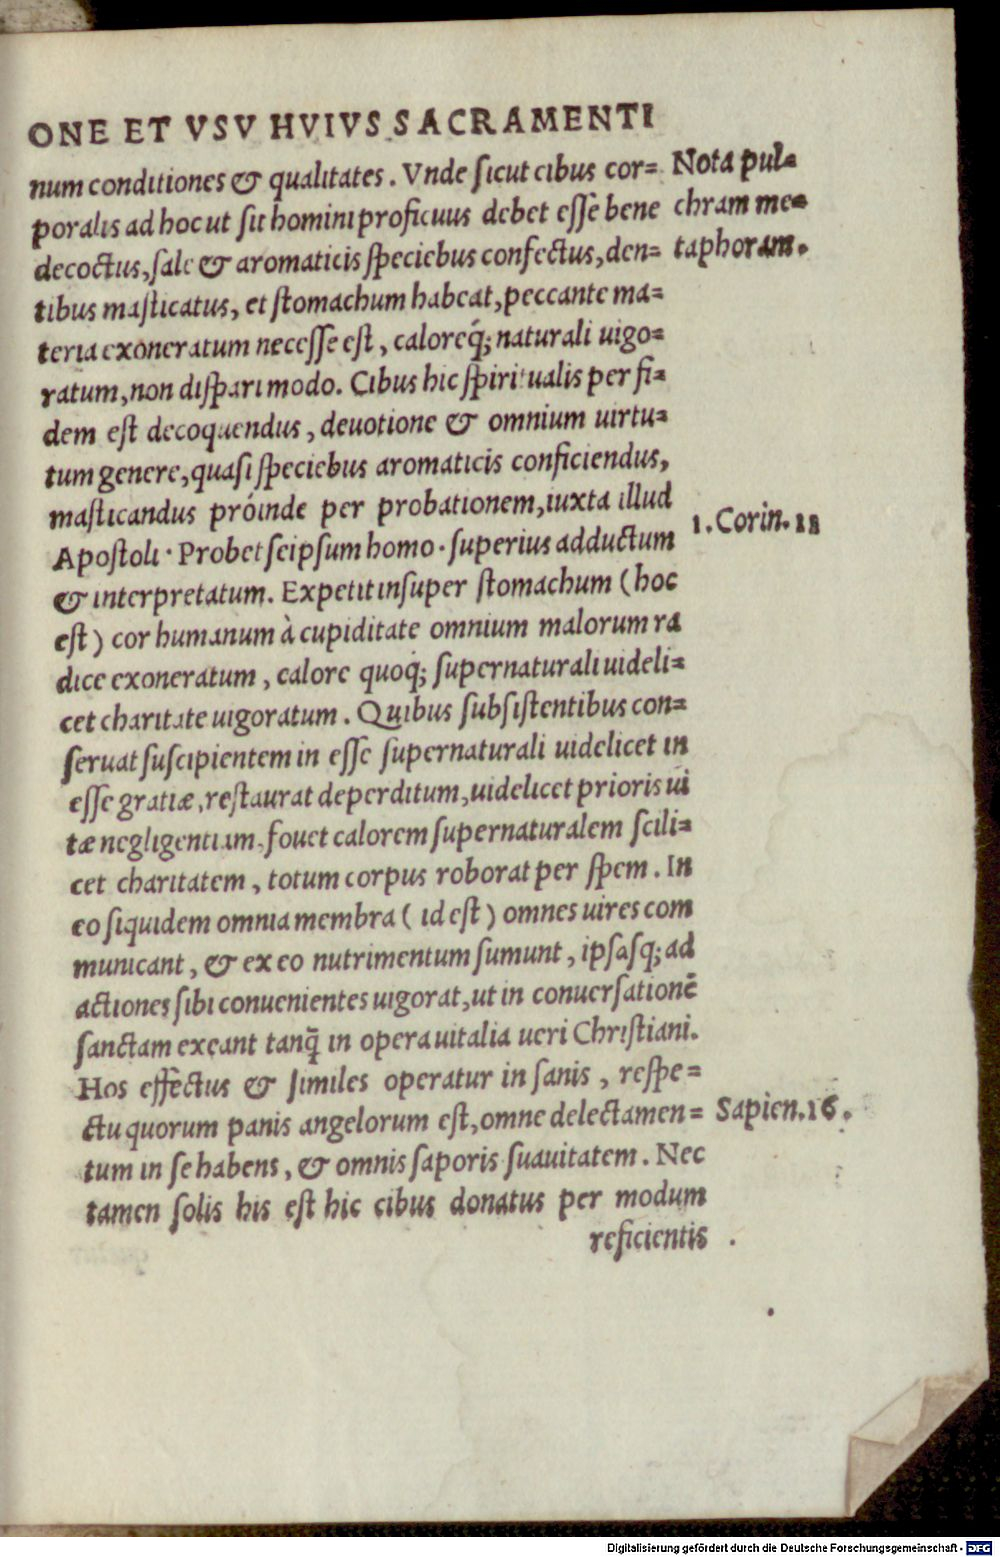 ONE ET VSV HVIVS SACRAMENTI
num conditiones & qualitates. Vnde ſicut cibus cor=
Nota pul=
poralis ad hoc ut ſit homini proficuus debet eſſe bene
chram me=
decoctus, ſale & aromaticis ſpeciebus confectus, den=
taphoram.
tibus maſticatus, et ſtomachum habeat, peccante ma=
teria exoneratum neceſſe eſt, caloreq́; naturali uigo=
ratum, non diſpari modo. Cibus hic ſpiritualis per fi=
dem eſt decoquendus, deuotione & omnium uirtu=
tum genere, quaſi ſpeciebus aromaticis conficiendus,
maſticandus próinde per probationem, iuxta illud
1. Corin. 11
Apoſtoli · Probet ſeipſum homo · ſuperius adductum
& interpretatum. Expetit inſuper ſtomachum (hoc
eſt) cor humanum à cupiditate omnium malorum ra
dice exoneratum, calore quoq́; ſupernaturali uideli=
cet charitate uigoratum. Quibus ſubſiſtentibus con=
ſeruat ſuſcipientem in eſſe ſupernaturali uidelicet in
eſſe gratiæ, reſtaurat deperditum, uidelicet prioris ui
tæ negligentiam, fouet calorem ſupernaturalem ſcili=
cet charitatem, totum corpus roborat per ſpem. In
eo ſiquidem omnia membra (id eſt) omnes uires com
municant, & ex eo nutrimentum ſumunt, ipſaſq; ad
actiones ſibi conuenientes uigorat, ut in conuerſationē
ſanctam exeant tanq̄ in opera uitalia ueri Chriſtiani.
Hos effectus & ſimiles operatur in ſanis, reſpe=
ctu quorum panis angelorum eſt, omne delectamen=
Sapien. 16.
tum in ſe habens, & omnis ſaporis ſuauitatem. Nec
tamen ſolis his eſt hic cibus donatus per modum
reficientis
Digitalisierung gefördert durch die Deutsche Forschungsgemeinschaft - DFG